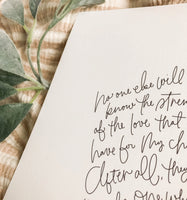 no one else will
know the stren
of the love that
have for my ch
After all, they